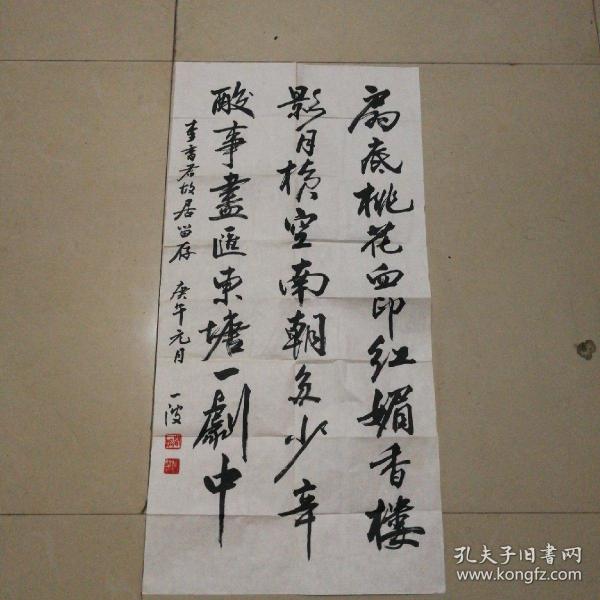 扇底桃花血印红媚香楼
影月横空南朝多少辛
酸事盡匯東塘一劇中
李香君故居留存 庚午元月 一波
孔夫子旧書网
www.kongfz.com